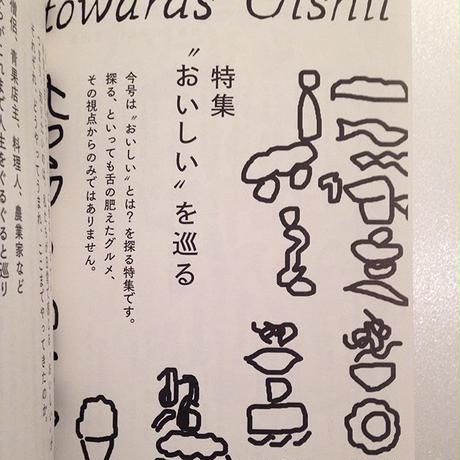 towards Oishii
特集
“おいしい”を巡る
今号は“おいしい”とは?を探る特集です。
探る、といっても舌の肥えたグルメ、
その視点からのみではありません。
僧侶、青果店主、料理人、農業家など
人生をぐるぐると巡り